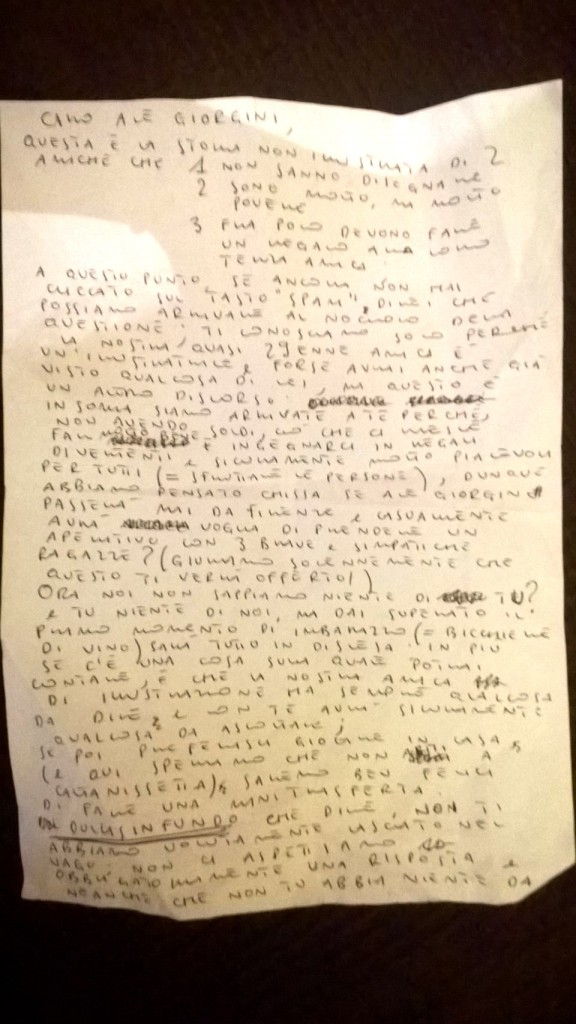 CARO ALE GIORGINI,
QUESTA È LA STORIA NON ILLUSTRATA DI 2
AMICHE CHE 1 NON SANNO DISEGNARE
2 SONO MOLTO, MA MOLTO
POVERE
3 FRA POCO DEVONO FARE
UN REGALO ALLA LORO
TERZA AMICA
A QUESTO PUNTO SE ANCORA NON HAI
CLICCATO SUL TASTO "SPAM", DIREI CHE
POSSIAMO ARRIVARE AL NOCCIOLO DELLA
QUESTIONE: TI CONOSCIAMO SOLO PERCHÉ
LA NOSTRA QUASI 29ENNE AMICA È
UN'ILLUSTRATRICE E FORSE AVRAI ANCHE GIÀ
VISTO QUALCOSA DI LEI, MA QUESTO È
UN ALTRO DISCORSO.
IN SOMMA SIAMO ARRIVATE A TE PERCHÉ,
NON AVENDO
SOLDI, CIÒ CHE CI RIESCE
È INGEGNARCI IN REGALI
DIVERTENTI E SICURAMENTE MOLTO PIACEVOLI
PER TUTTI (= SFRUTTARE LE PERSONE), DUNQUE
ABBIAMO PENSATO CHISSÀ SE ALE GIORGINI
PASSERÀ MAI DA FIRENZE E CASUALMENTE
AVRÀ VOGLIA DI PRENDERE UN
APERITIVO CON 3 BRAVE E SIMPATICHE
RAGAZZE? (GIURIAMO SOLENNEMENTE CHE
QUESTO TI VERRÀ OFFERTO!)
ORA NOI NON SAPPIAMO NIENTE DI TU?
E TU NIENTE DI NOI, MA DAI SUPERATO IL
PRIMO MOMENTO DI IMBARAZZO (= BICCHIERE
DI VINO) SARÀ TUTTO IN DISCESA. IN PIÙ
SE C'È UNA COSA SULLA QUALE POTRAI
CONTARE, È CHE LA NOSTRA AMICA
DI ILLUSTRAZIONE HA SEMPRE QUALCOSA
DA DIRE, E CON TE AVRÀ SICURAMENTE
QUALCOSA DA ASCOLTARE;
SE POI PREFERISCI GIOCARE IN CASA
(E QUI SPERIAMO CHE NON A
CALTANISSETTA), SAREMO BEN FELICI
DI FARE UNA MINI TRASFERTA.
DULCIS IN FUNDO CHE DIRE, NON TI
ABBIAMO VOLUTAMENTE LASCIATO NEL
VAGO. NON CI ASPETTIAMO
OBBLIGATORIAMENTE UNA RISPOSTA E
NEANCHE CHE NON TU ABBIA NIENTE DA